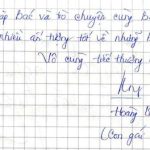 ặp Bác và trò chuyện cùng B
nhiều ấn tượng tốt về những
Vô cùng tiếc thương
Hoàng
(Con gái